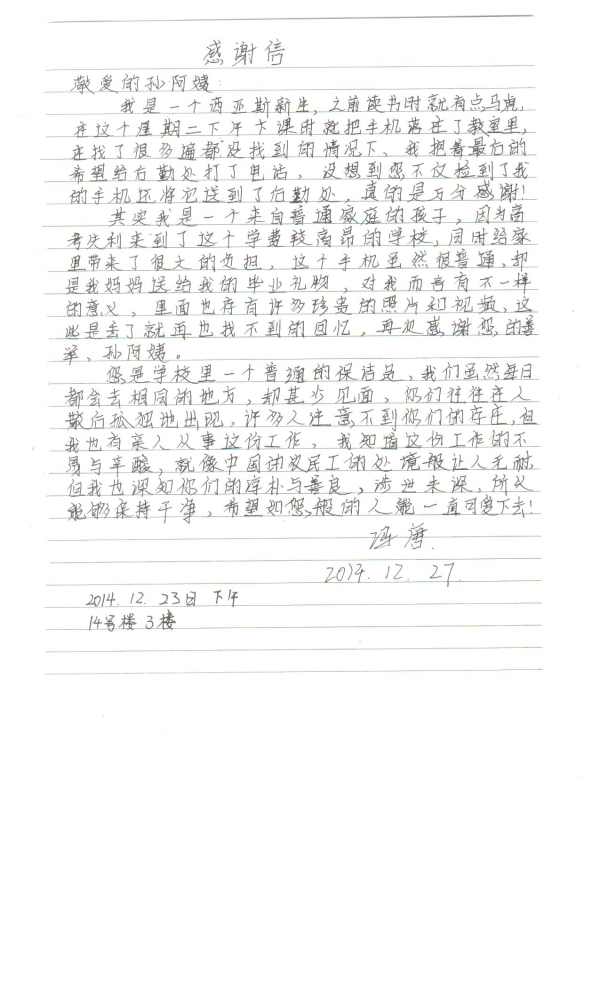 感谢信
敬爱的孙阿姨：
我是一个西亚斯新生，之前读书时就有点马虎，
在这个星期二下午大课时就把手机落在了教室里，
在找了很多遍都没找到的情况下、我把着最后的
希望给后勤处打了电话，没想到您不仅捡到了我
的手机还将它送到了后勤处，真的是万分感谢！
其实我是一个来自普通家庭的孩子，因为高
考失利来到了这个学费较高昂的学校，同时给家
里带来了很大的负担，这个手机虽然很普通，却
是我妈妈送给我的毕业礼物，对我而言有不一样
的意义，里面也存有许多珍贵的照片和视频，这
些是丢了就再也找不到的回忆，再次感谢您的善
举、孙阿姨。
您是学校里一个普通的保洁员，我们虽然每日
都会去相同的地方，却甚少见面，你们往往在人
散后孤独地出现，许多人注意不到你们的存在，但
我也有亲人从事这份工作，我知道这份工作的不
易与辛酸，就像中国的农民工的处境般让人无耐，
但我也深知你们的淳朴与善良，涉世未深，所以
能够保持干净，希望如您般的人能一直可爱下去！
冯唐.
2014.12.27.
2014.12.23日 下午
14号楼 3楼